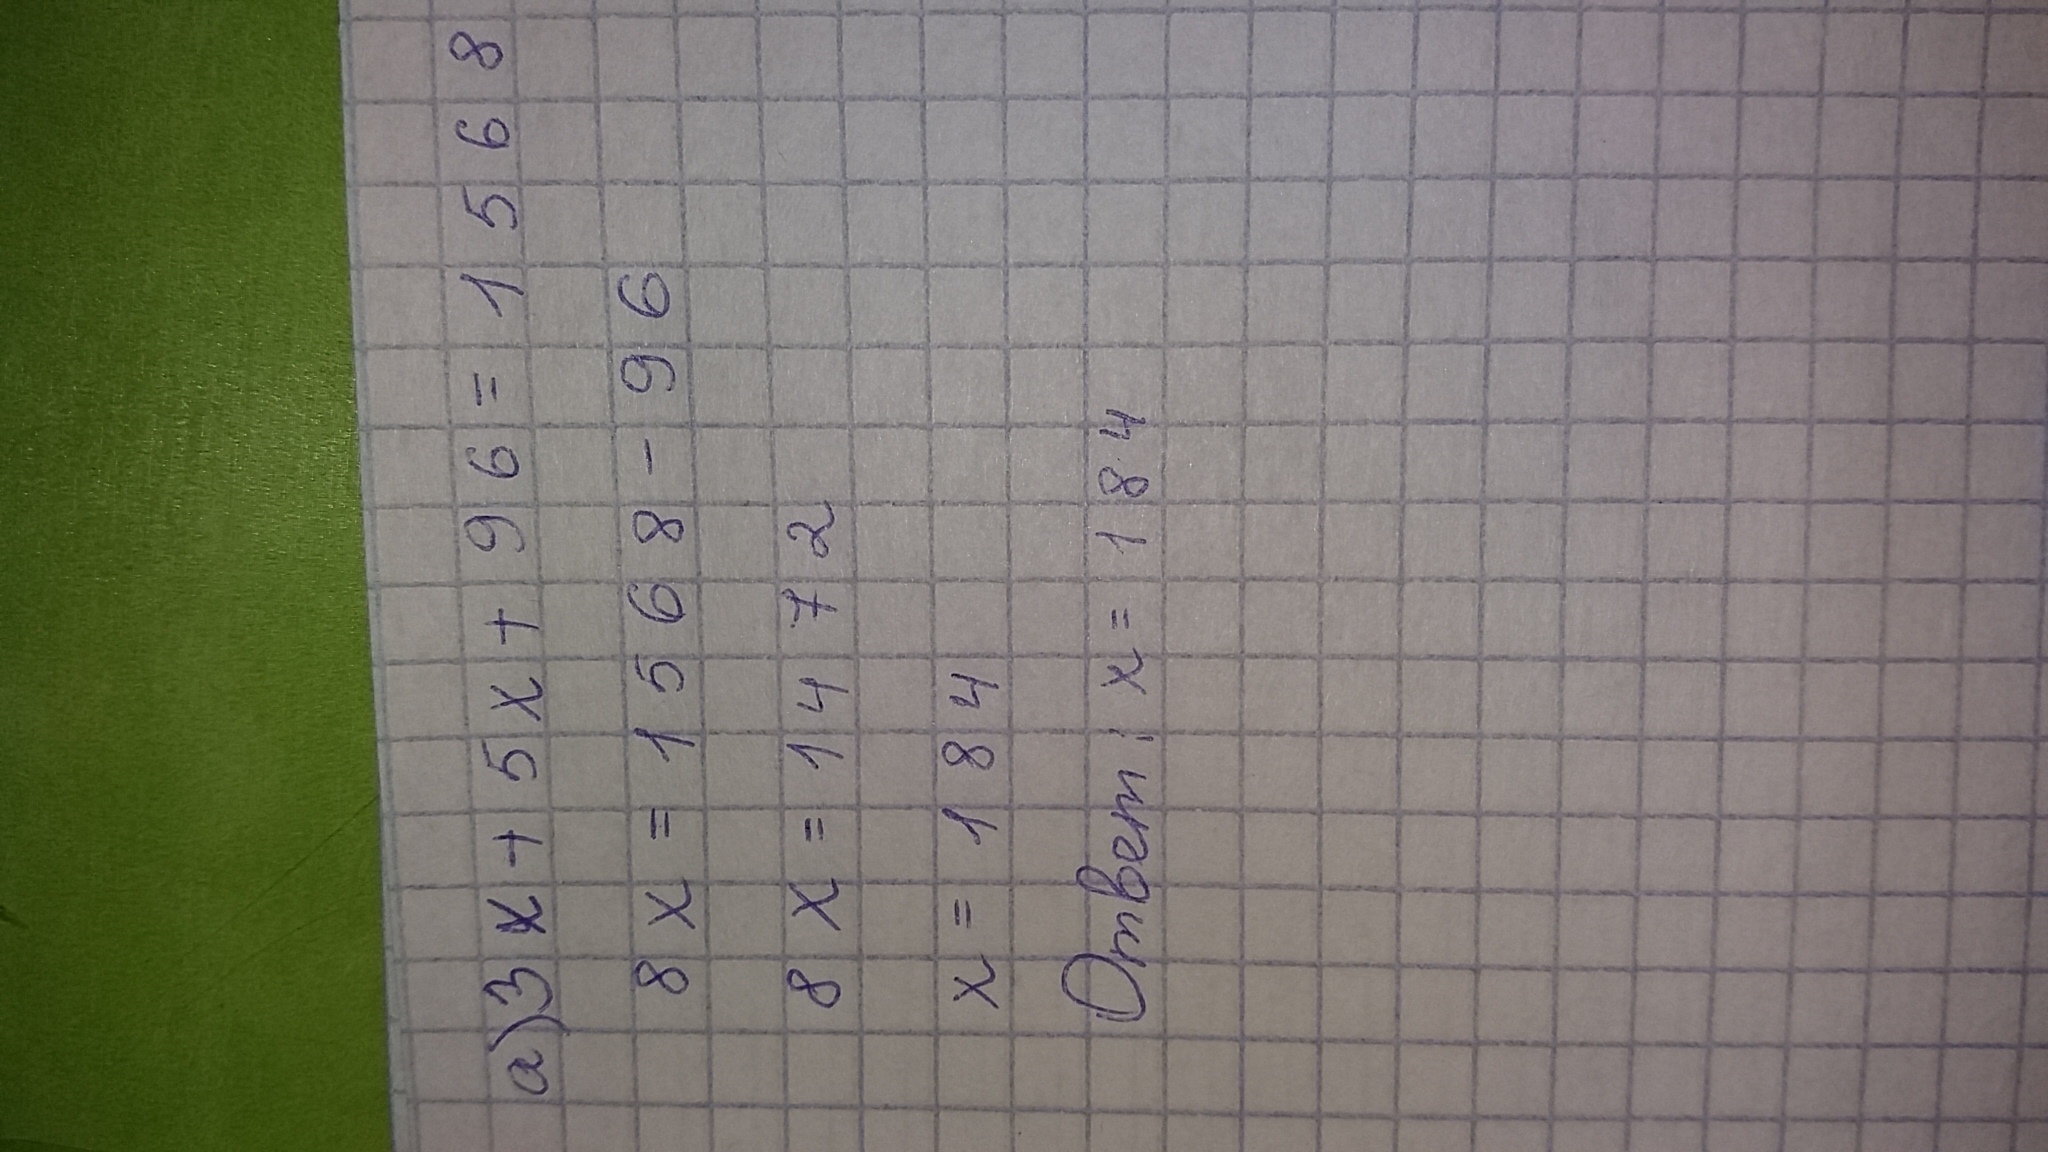 а) 3x + 5x + 96 = 1568
8x = 1568 - 96
8x = 1472
x = 184
Ответ: x = 184